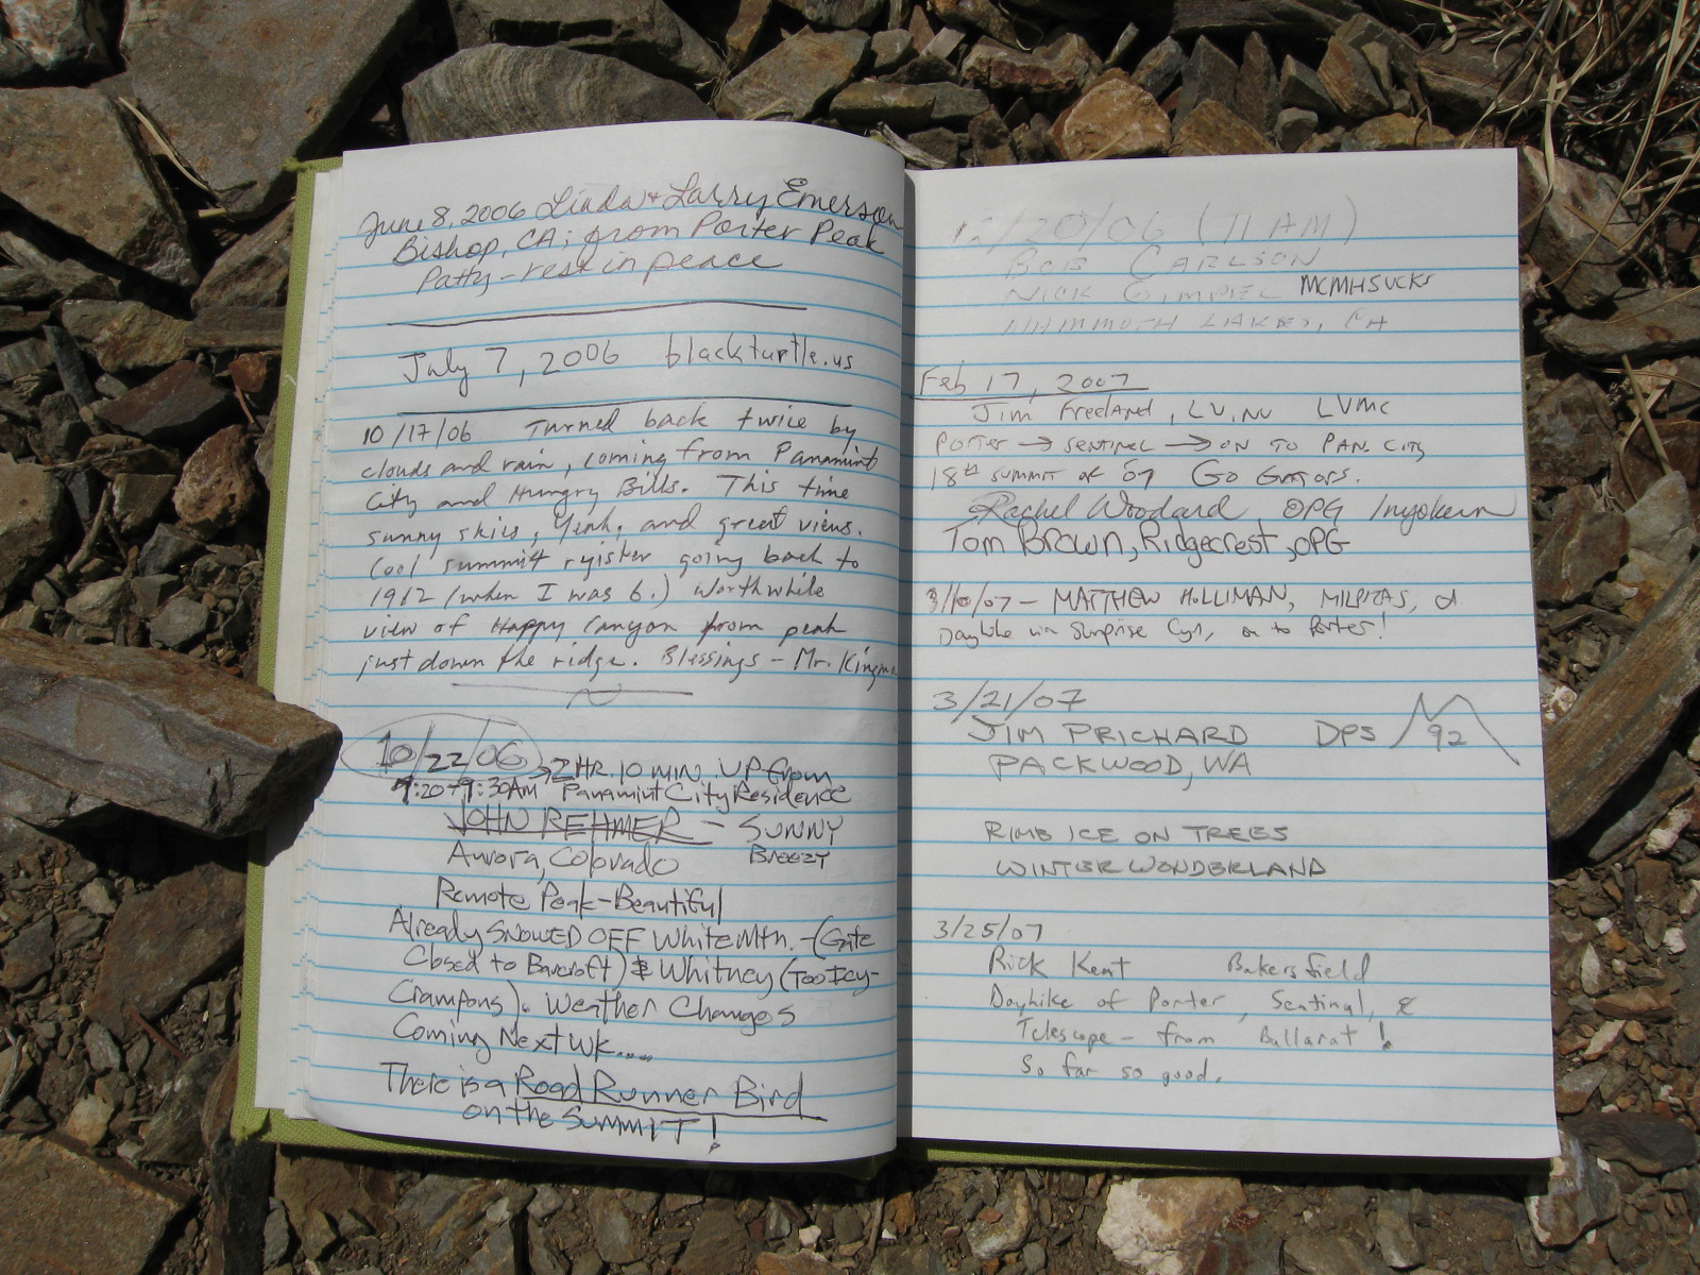 June 8, 2006 Linda & Larry Emerson
Bishop, CA; from Porter Peak
Patty - rest in peace
July 7, 2006 blackturtle.us
10/17/06 Turned back twice by
clouds and rain, coming from Panamint
City and Hungry Bills. This time
sunny skies, yeah, and great views.
Cool summit register going back to
1962 (when I was 6.) Worthwhile
view of Happy Canyon from peak
just down the ridge. Blessings - Mr. Kingman
10/22/06 → 2 HR. 10 MIN. UP from
9:20-9:30AM Panamint City Residence
JOHN REHMER - SUNNY
Aurora, Colorado BREEZY
Remote Peak-Beautiful
Already SNOWED OFF White Mtn. - (Gate
Closed to Barcroft) & Whitney (Too Icy-
Crampons). Weather Changes
Coming Next Wk.....
There is a Road Runner Bird
on the SUMMIT!
12/20/06 (11 AM)
BOB CARLSON
NICK MCMHSUCKS
MAMMOTH LAKES, CA
Feb 17, 2007
JIM FREELAND, LV, NV LVMC
PORTER → SENTINEL → ON TO PAN. CITY
18th SUMMIT OF 07 GO GATORS.
Rachel Woodard OPG Inyokern
Tom Brown, Ridgecrest, OPG
3/10/07 - MATTHEW HOLLIMAN, MILPITAS, CA
Dayhike via Surprise Cyn, on to Porter!
3/21/07
JIM PRICHARD DPS 92
PACKWOOD, WA
RIME ICE ON TREES
WINTER WONDERLAND
3/25/07
Rick Kent Bakersfield
Dayhike of Porter, Sentinal, &
Telescope - from Ballarat!
So far so good.